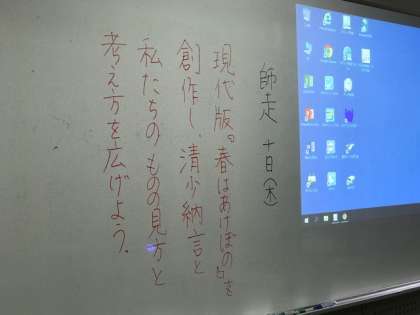 師走 十日(木)
現代版『春はあけぼの』を
創作し、清少納言と
私たちのものの見方と
考え方を広げよう。